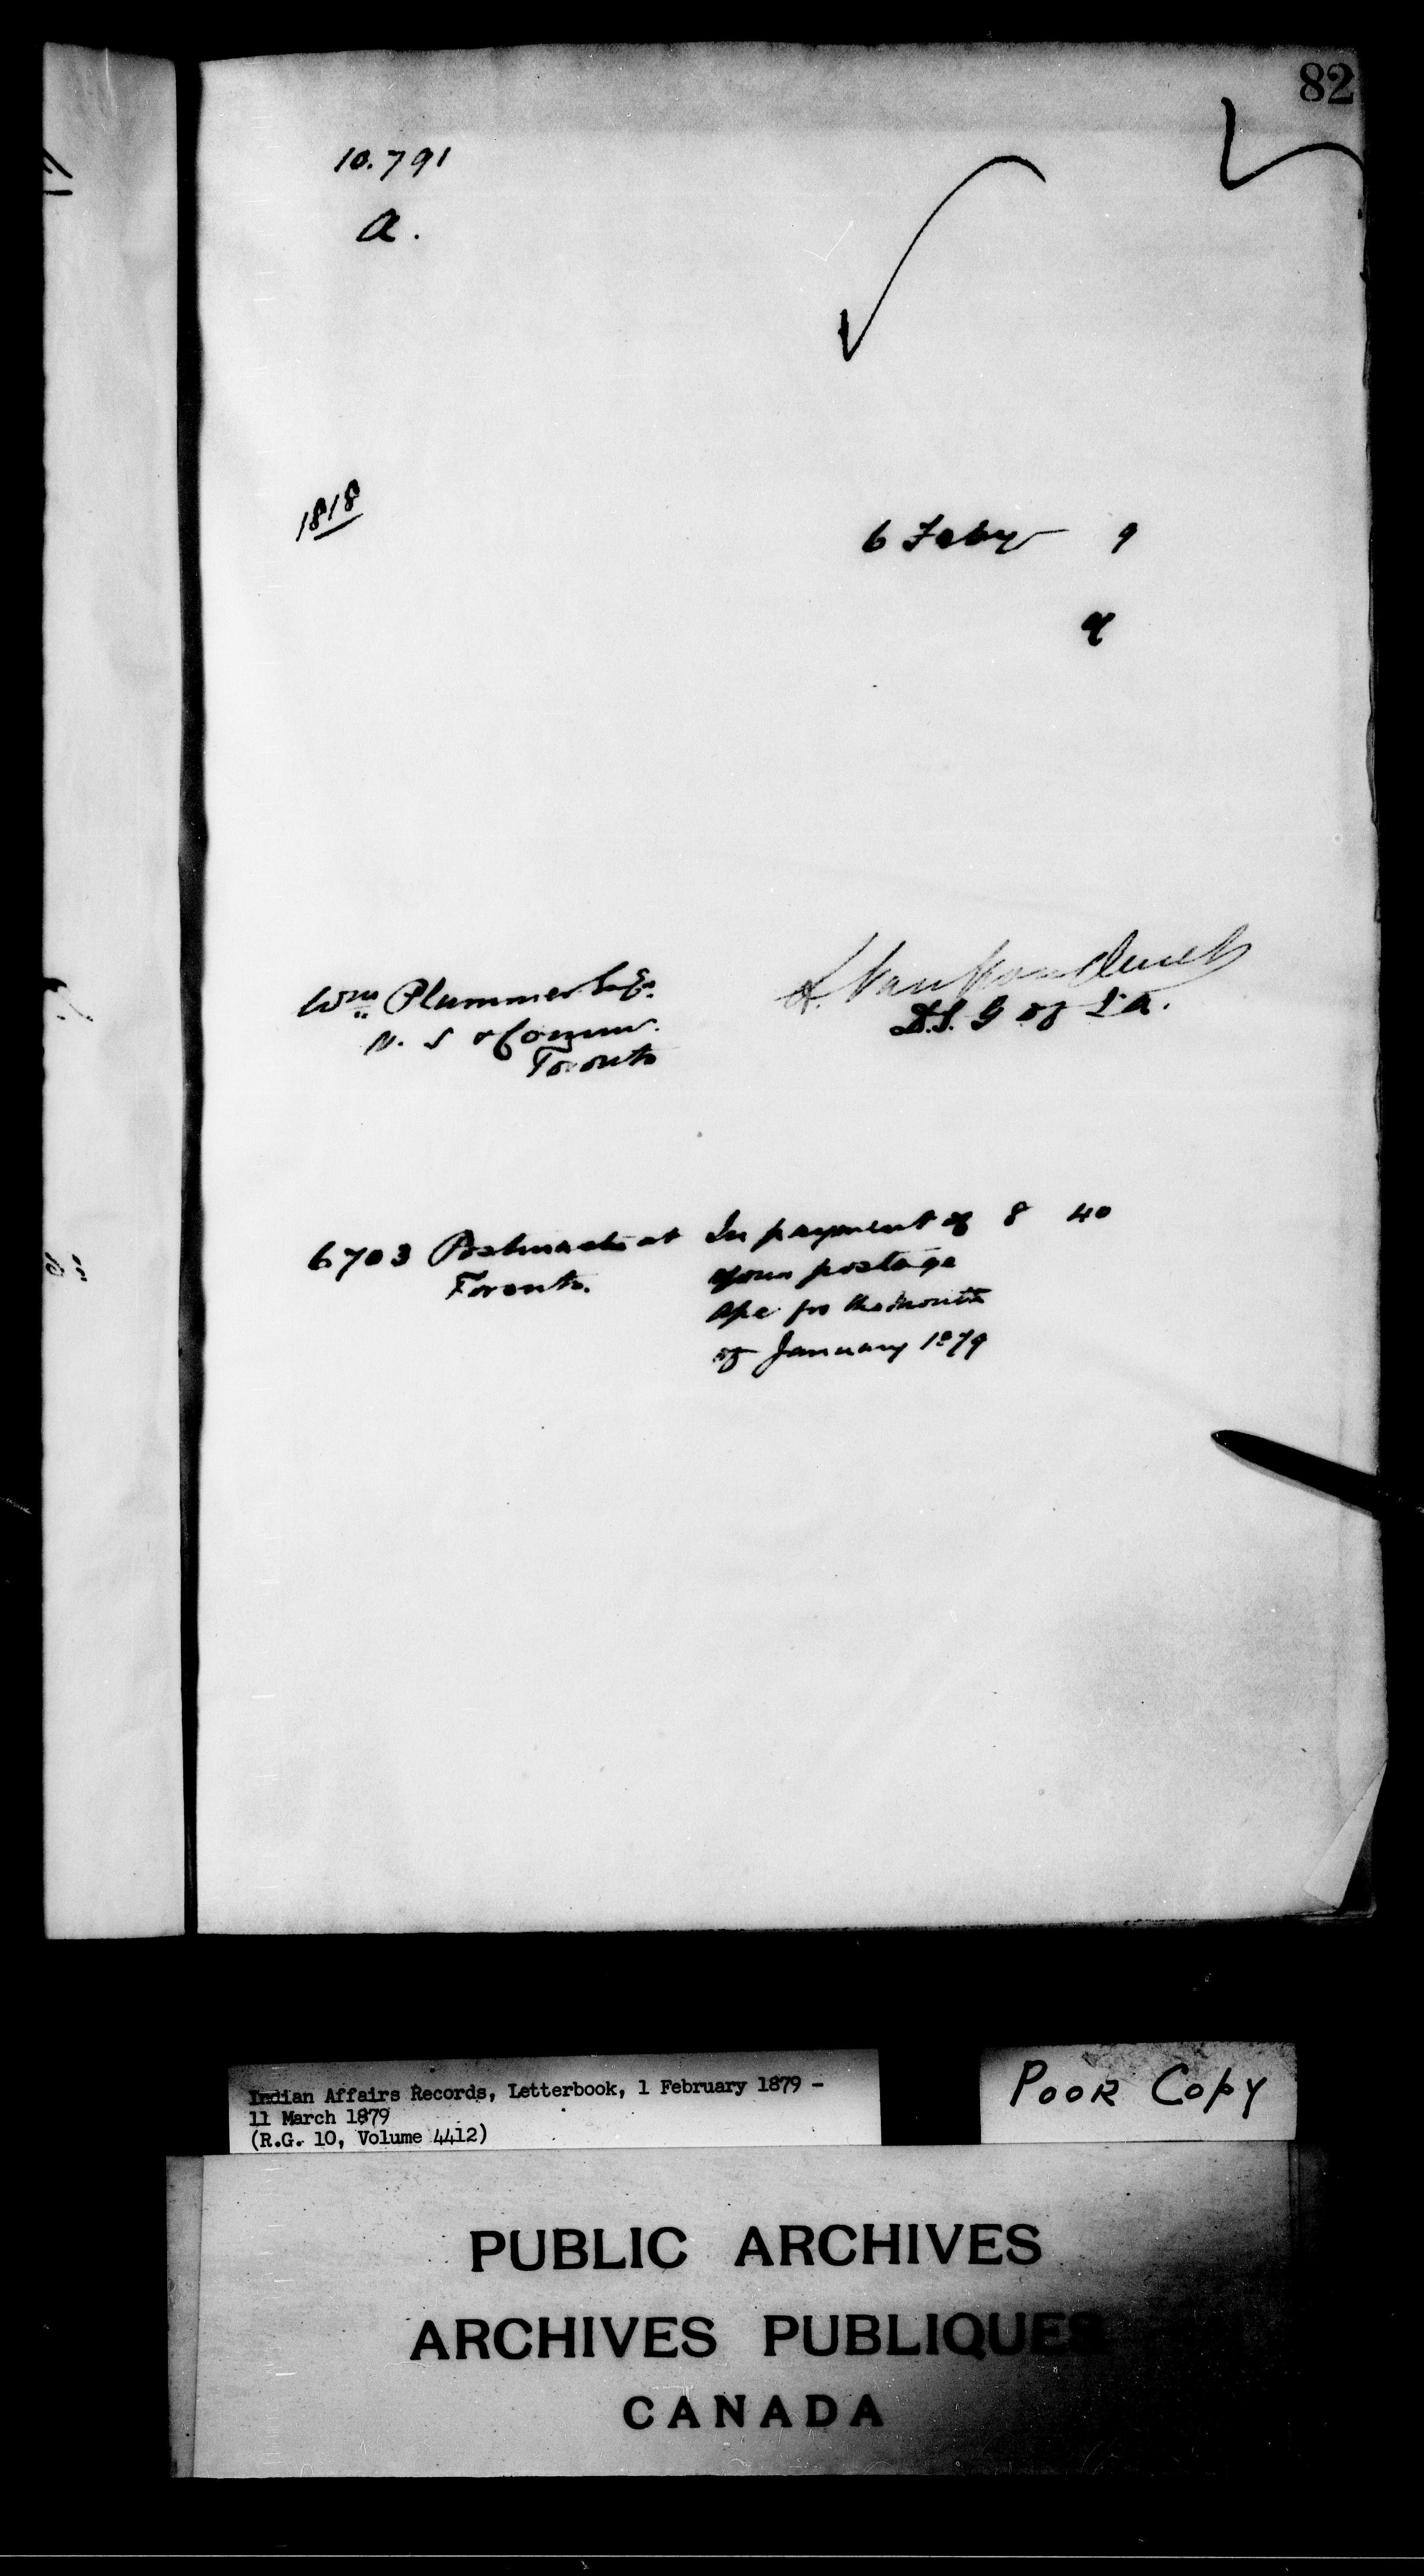 82
10.791
a.
1818
6 Feby 9
A. VanKoughnet
D.S.G of I.a.
Wm Plummer Esqr.
V. S & Commr.
Toronto
6703 Postmaster at In payment of 8 40
Toronto. your postage
a/c for the month
of January 1879
Indian Affairs Records, Letterbook, 1 February 1879 -
11 March 1879
(R.G. 10, Volume 4412)
Poor Copy
PUBLIC ARCHIVES
ARCHIVES PUBLIQUES
CANADA